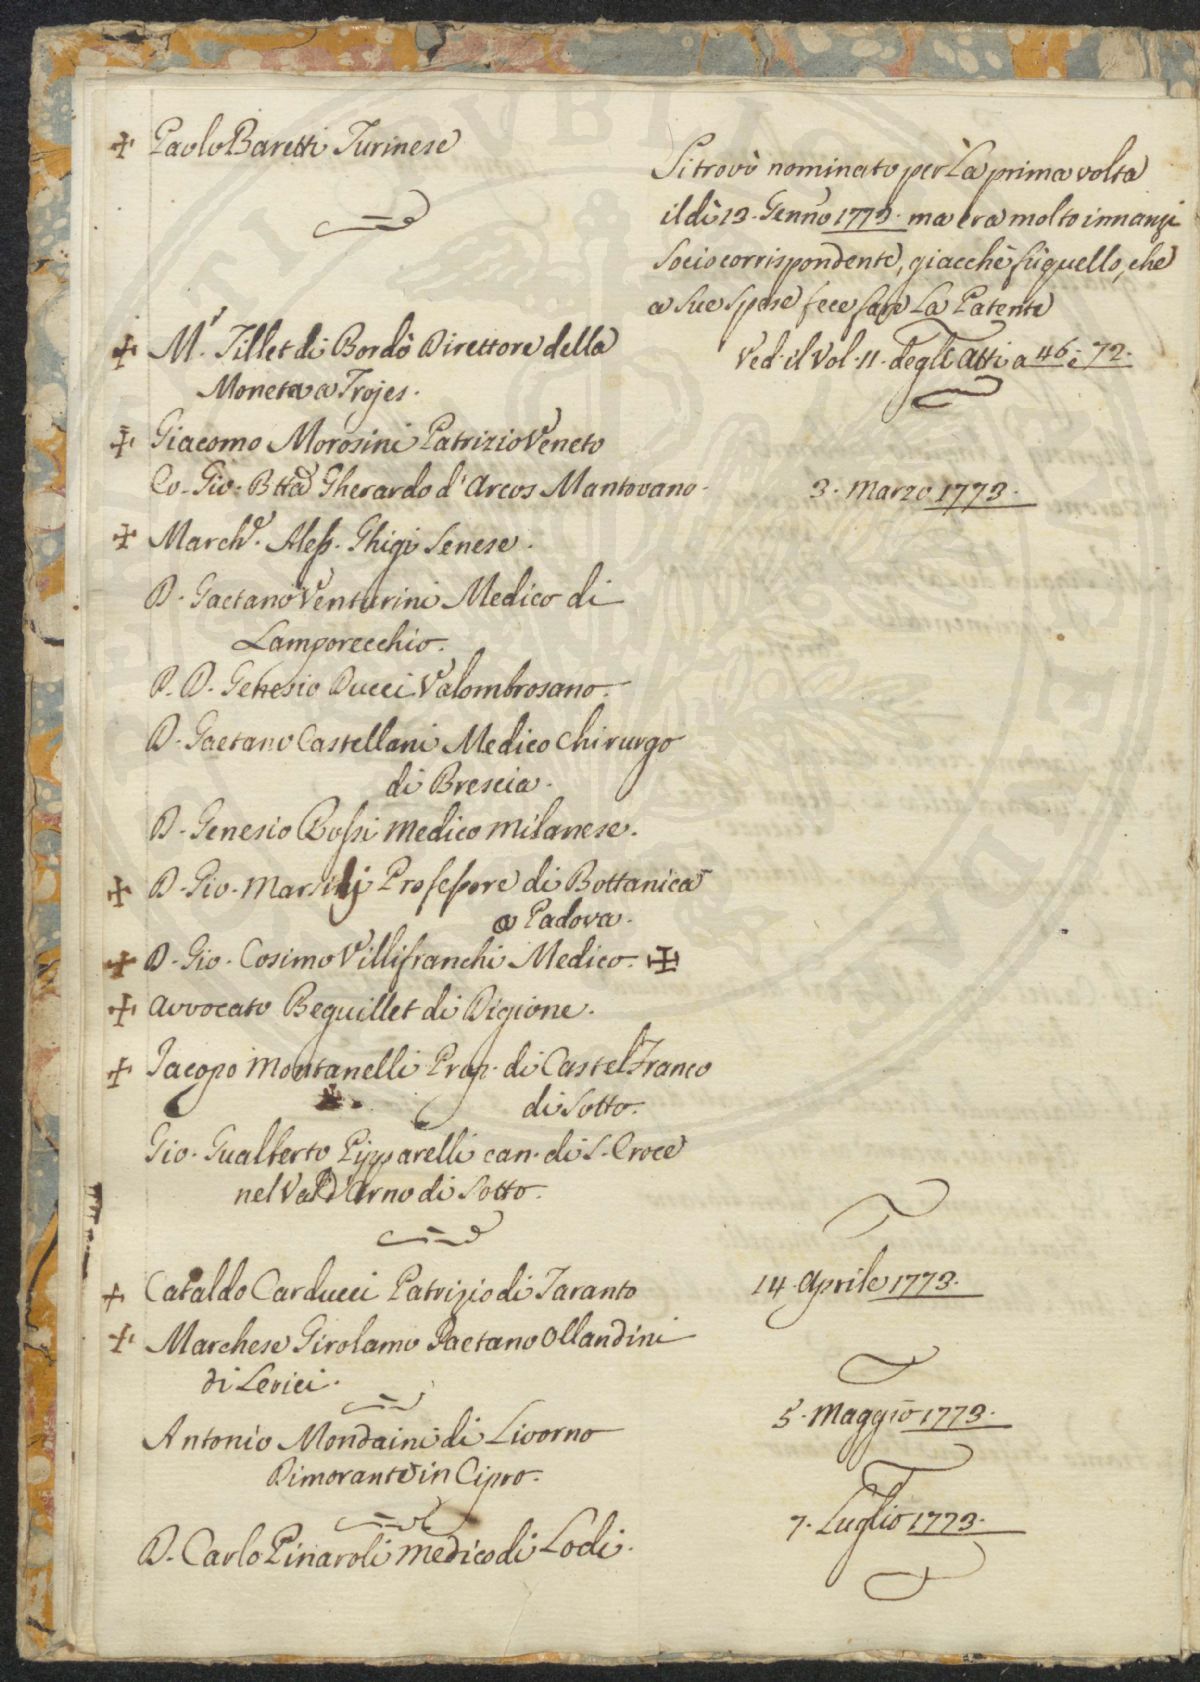 ✠ Paolo Baretti Turinese
Si trovò nominato per La prima volta
il dì 13. Genn.o 1773. ma era molto innanzi
Socio corrispondente, giacchè fù quello, che
a sue spese fece fare La Patente
Ved. il Vol. 11. degli Atti a 46. e 72.
✠ M.r Tillet di Bordò Direttore della
Moneta a Trojes.
✠ Giacomo Morosini Patrizio Veneto
Co. Gio. Btta Gherardo d'Arcos Mantovano.
3. Marzo 1773.
✠ March.e Aless. Ghigi Senese.
D. Gaetano Venturini Medico di
Lamporecchio.
P. D. Genesio Ducci Valombrosano.
D. Gaetano Castellani Medico Chirurgo
di Brescia.
D. Genesio Rossi Medico Milanese.
✠ D. Gio. Marsilj Professore di Bottanica
a Padova.
✠ D. Gio. Cosimo Villifranchi Medico. ✠
✠ Avvocato Beguillet di Digione.
✠ Jacopo Montanelli Prop. di Castel Franco
di Sotto.
Gio. Gualberto Pipparelli can. di S. Croce
nel Val d'Arno di Sotto.
✠ Cataldo Carducci Patrizio di Taranto
14. Aprile 1773.
✠ Marchese Girolamo Gaetano Ollandini
di Lerici.
Antonio Mondaini di Livorno
5. Maggio 1773.
Dimorante in Cipro.
7. Luglio 1773.
D. Carlo Pinaroli medico di Lodi.